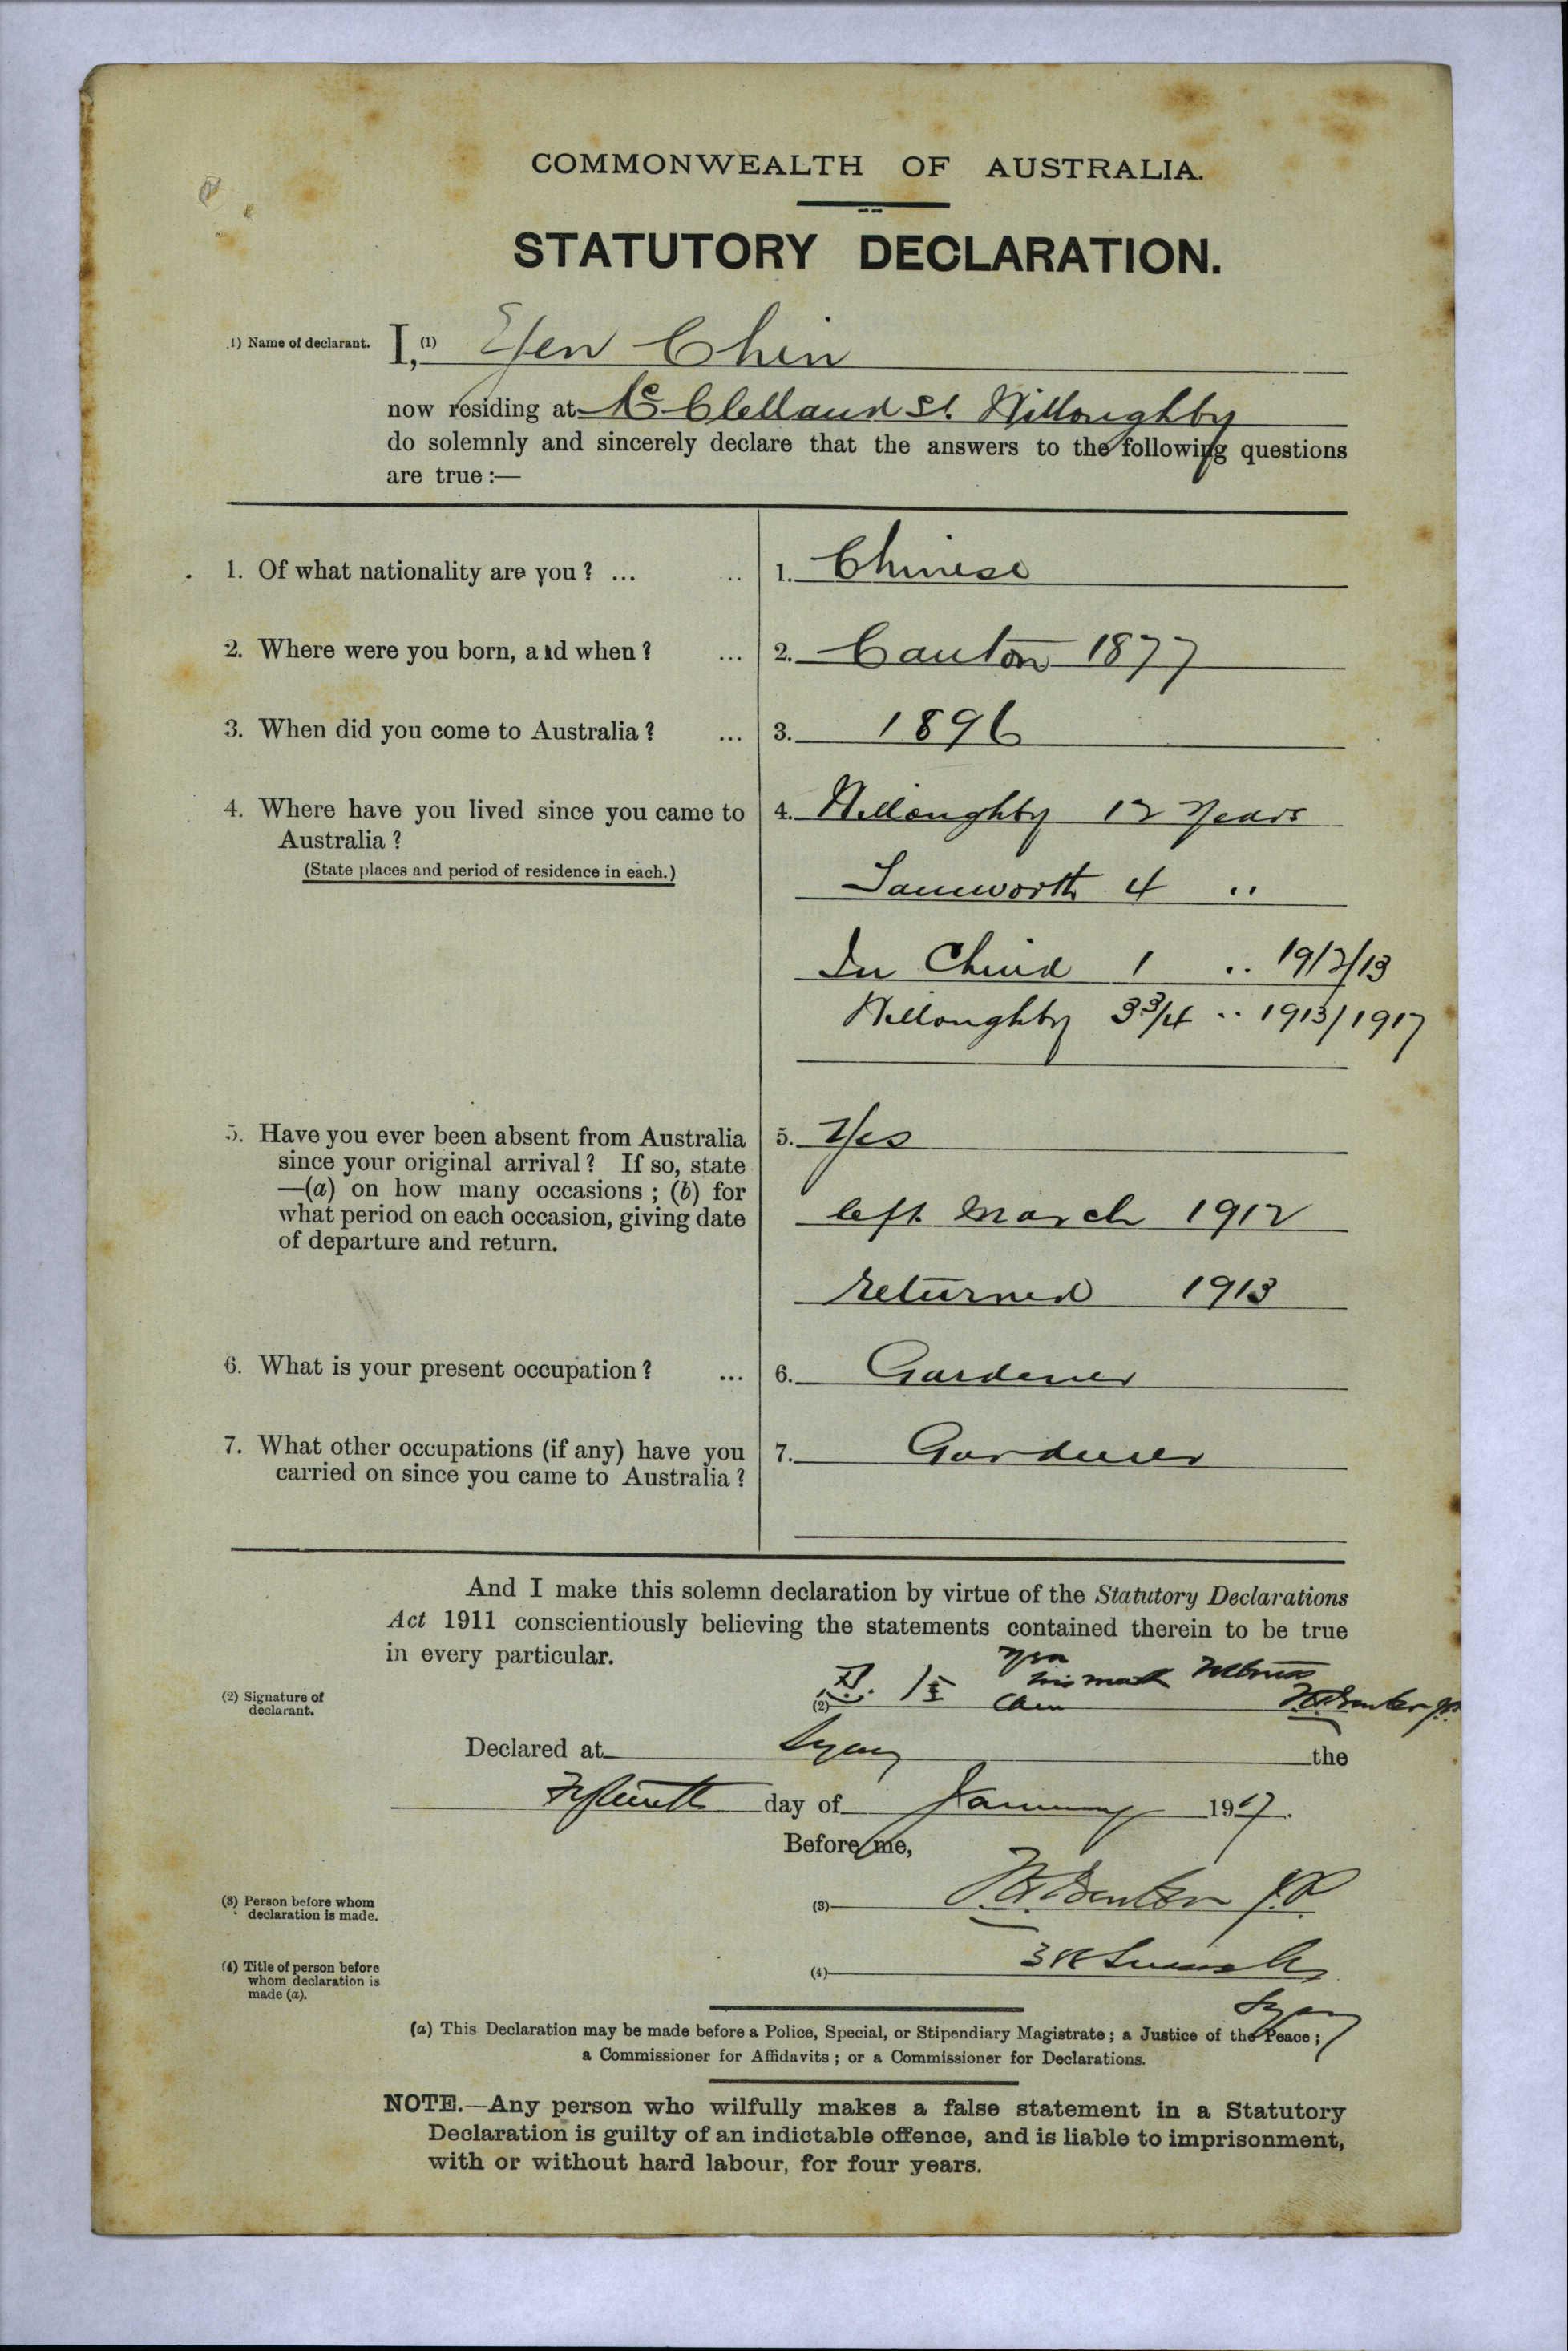 COMMONWEALTH OF AUSTRALIA.
STATUTORY DECLARATION.
1) Name of declarant. I, (1) Yen Chin
now residing at Mc Clelland St. Willoughby
do solemnly and sincerely declare that the answers to the following questions
are true:—
1. Of what nationality are you? ... .. 1. Chinese
2. Where were you born, and when? ... 2. Canton 1877
3. When did you come to Australia? ... 3. 1896
4. Where have you lived since you came to 4. Willoughby 12 Years
Australia?
(State places and period of residence in each.)
Tamworth 4 "
In China 1 " 1912/13
Willoughby 3 3/4 " 1913/1917
5. Have you ever been absent from Australia 5. Yes
since your original arrival? If so, state
—(a) on how many occasions; (b) for
what period on each occasion, giving date left March 1912
of departure and return.
returned 1913
6. What is your present occupation? ... 6. Gardener
7. What other occupations (if any) have you 7. Gardener
carried on since you came to Australia?
And I make this solemn declaration by virtue of the Statutory Declarations
Act 1911 conscientiously believing the statements contained therein to be true
in every particular.
Yen
his mark Witness
(2) Signature of declarant. (2) Chin
Declared at Sydney the
Fifteenth day of January 1917.
Before me,
(3) Person before whom declaration is made. (3) J.P.
(4) Title of person before whom declaration is made (a). (4)
Sydney
(a) This Declaration may be made before a Police, Special, or Stipendiary Magistrate; a Justice of the Peace;
a Commissioner for Affidavits; or a Commissioner for Declarations.
NOTE.—Any person who wilfully makes a false statement in a Statutory
Declaration is guilty of an indictable offence, and is liable to imprisonment,
with or without hard labour, for four years.